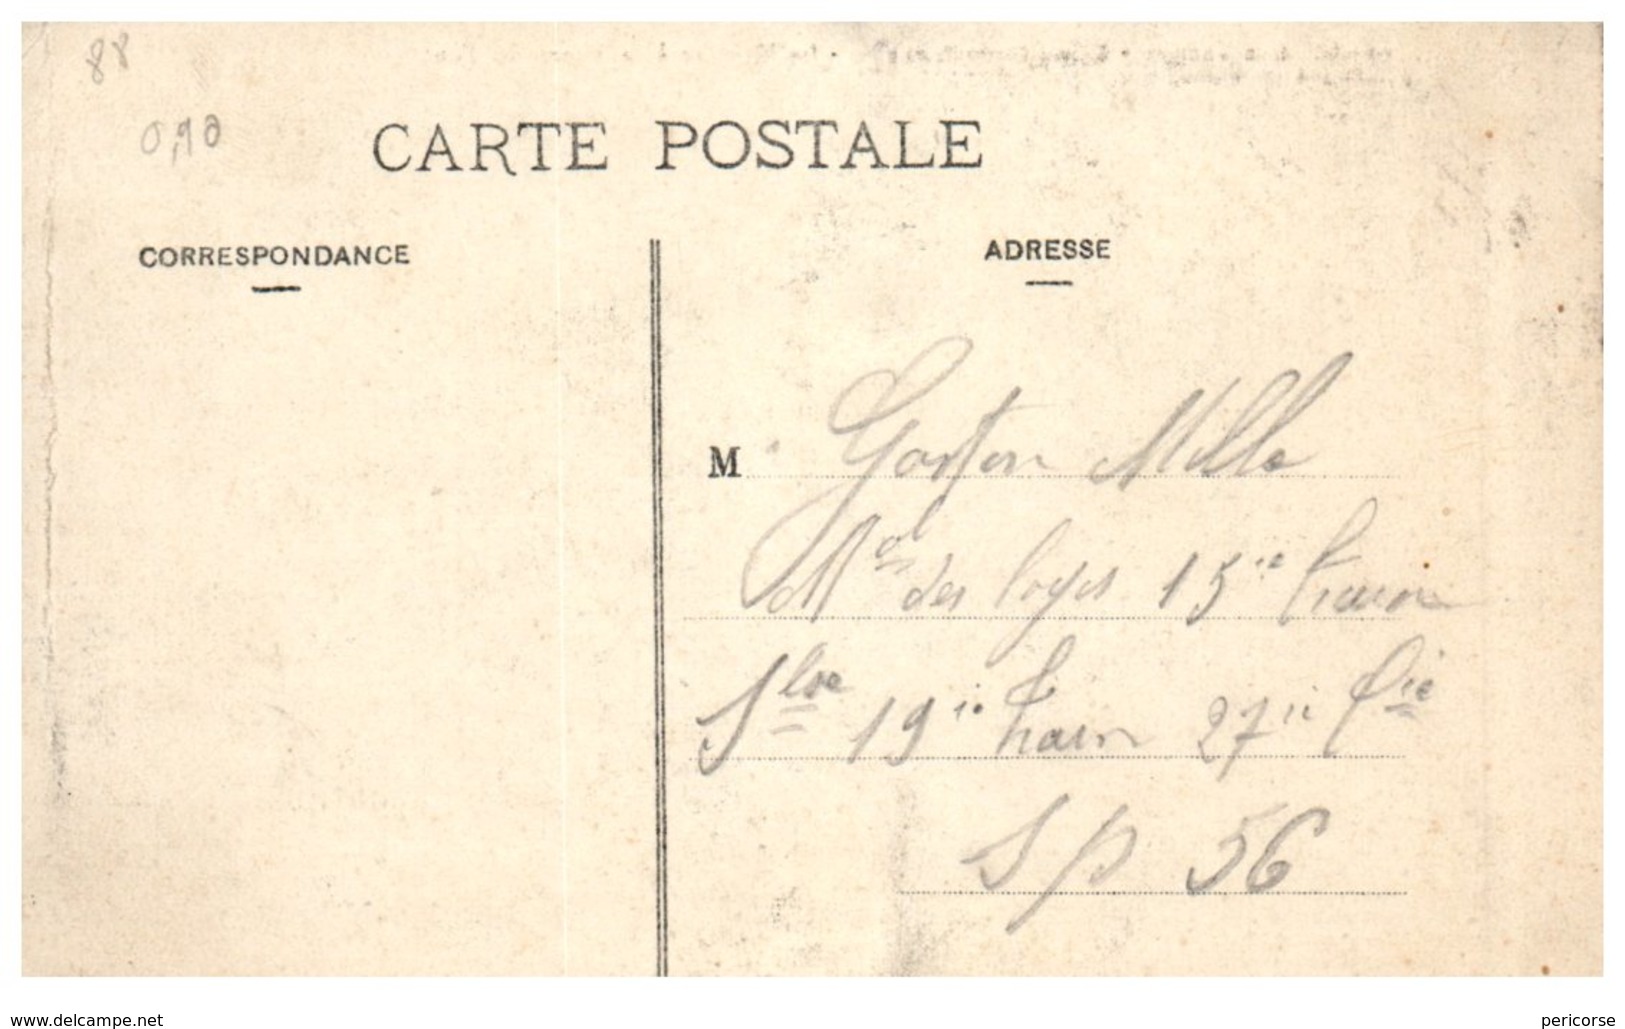 88
0,90
CARTE POSTALE
CORRESPONDANCE
ADRESSE
M. Gaston Mille
Mal des logis 15ie train
19ie train 27ie Cie
SP 56
www.delcampe.net
pericorse